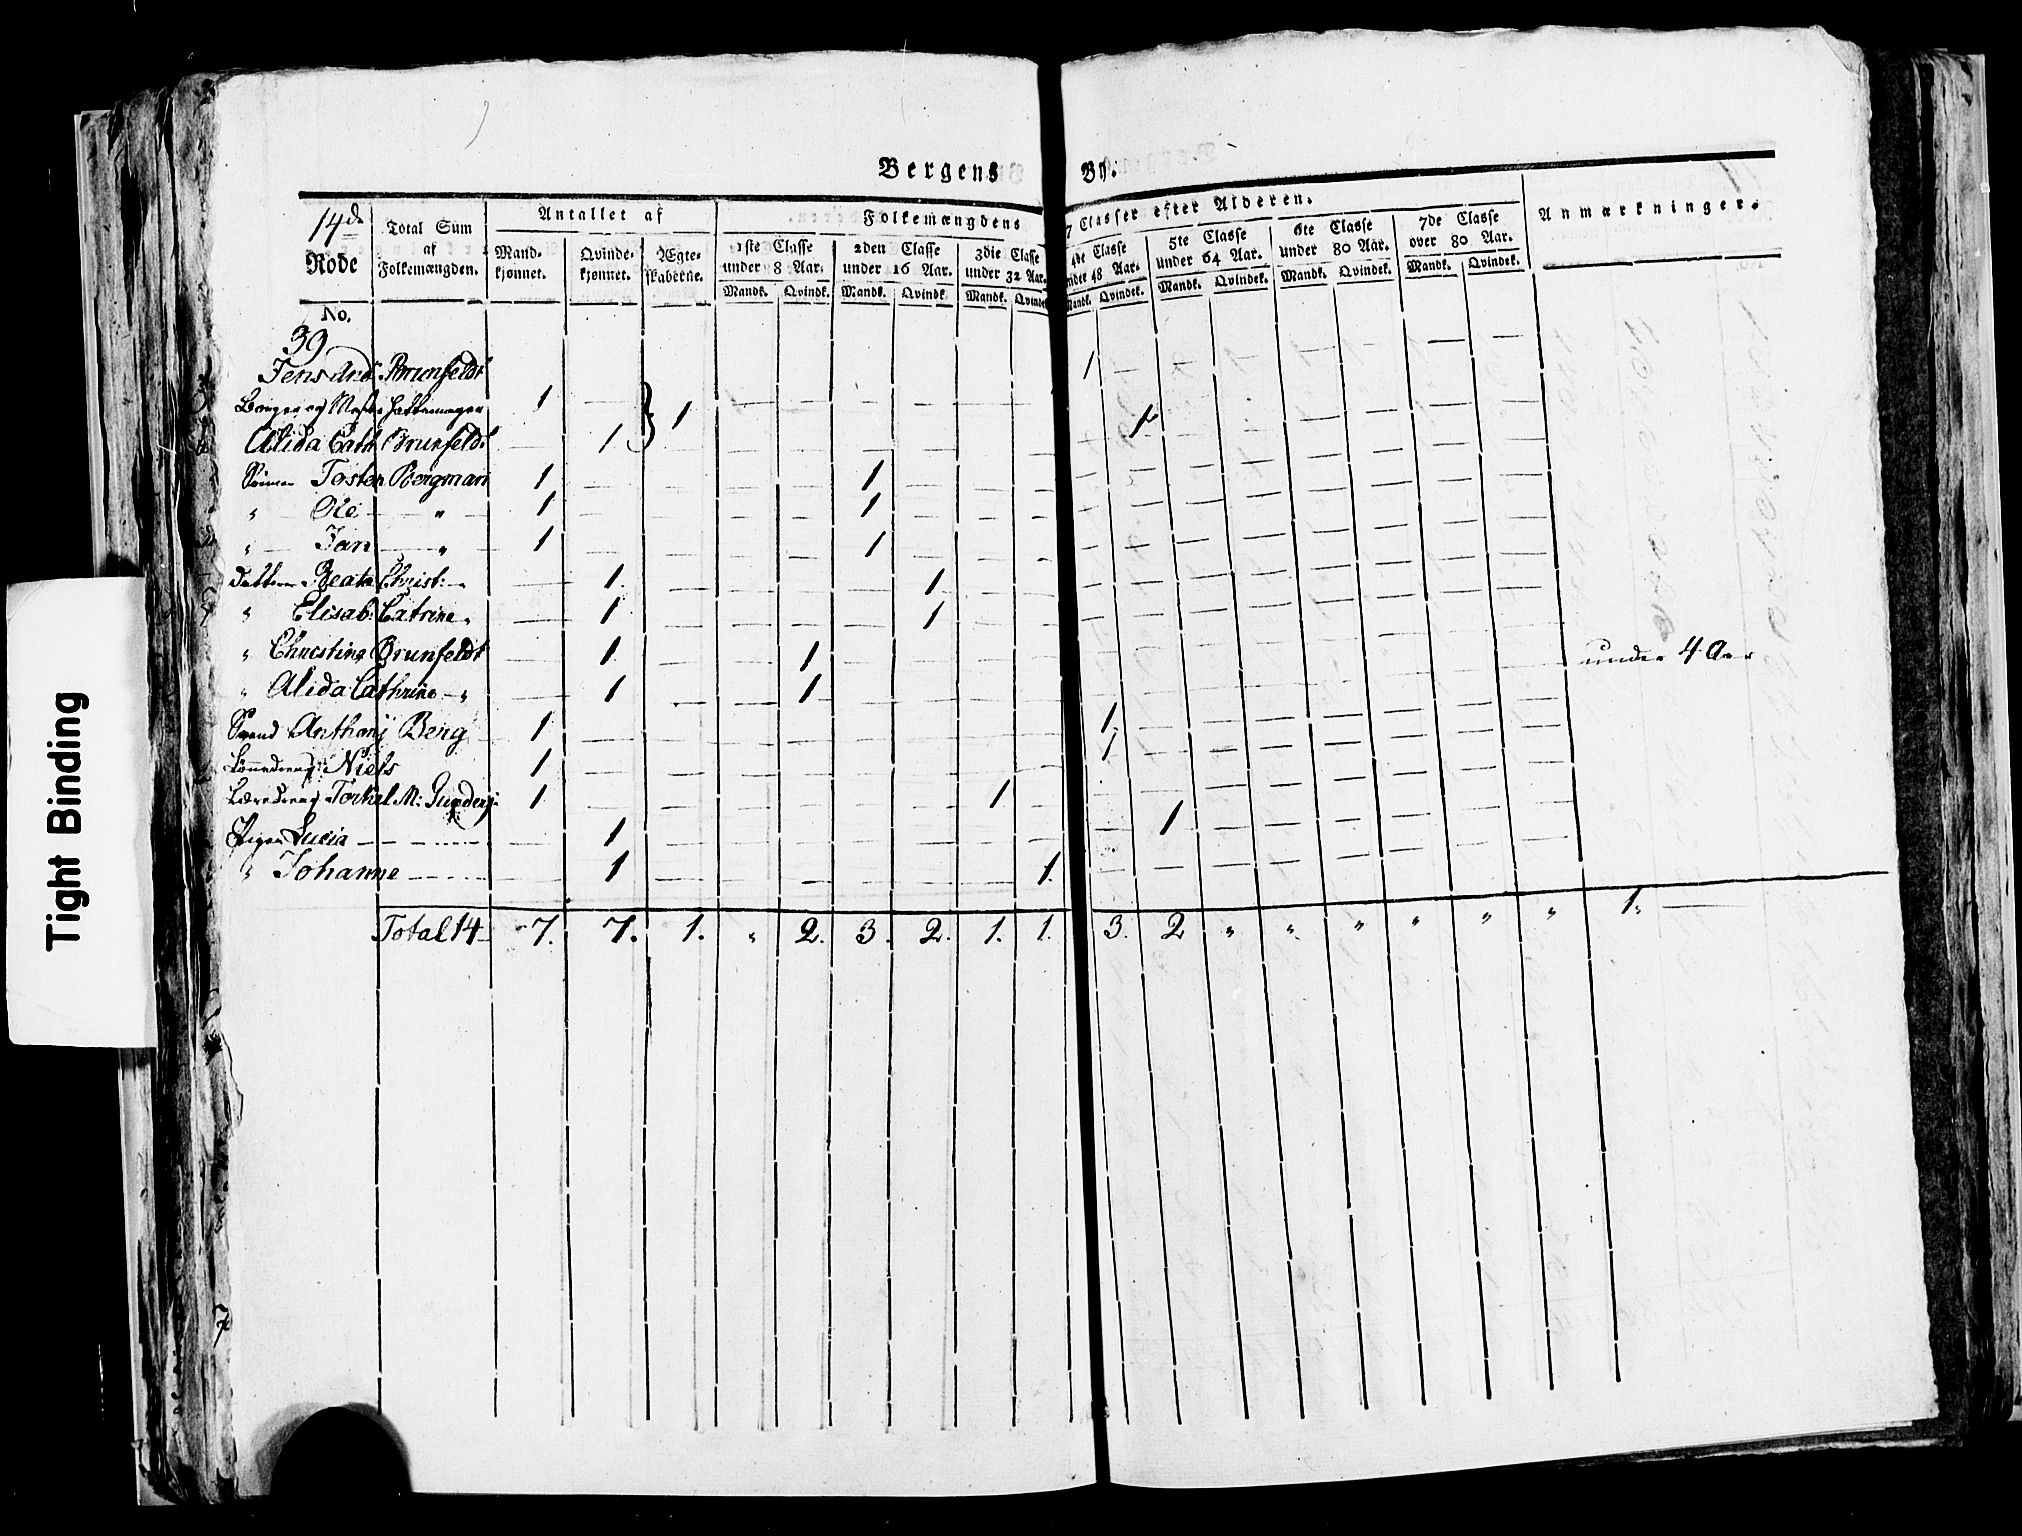 Bergens By.
14de Rode
Total Sum af Folkemængden.
Antallet af
Mand-kjønnet.
Qvinde-kjønnet.
Ægte-skaberne.
Folkemængdens 7 Classer efter Alderen.
1ste Classe under 8 Aar.
2den Classe under 16 Aar.
3die Classe under 32 Aar.
4de Classe under 48 Aar.
5te Classe under 64 Aar.
6te Classe under 80 Aar.
7de Classe over 80 Aar.
Mandk. Qvindk. Mandk. Qvindk. Mandk. Qvindek. Mandk. Qvindek. Mandk. Qvindek. Mandk. Qvindek. Mandk. Qvindek.
Anmærkninger.
No.
39
Jens And: Brunfeldt 1
Borger og Hattemager 1 — } 1
Alida Cath Brunfeldt — 1 1
Torsten Bergman 1 — 1
" Ole " 1 — 1
" Jan " 1 — 1
Datteren Beata Christ: " — 1 1
" Elisab: Catrine " — 1 1
" Christina Brunfeldt — 1 1 under 4 Aar
" Alida Cathrine " — 1 1
Svend Anthonÿ Berg 1 1
Niels 1 1
Læredreng Torkel M: 1 1
Pigen Lucia — 1 1
" Johanne — 1 1
Total 14 7. 7. 1. " 2. 3. 2. 1. 1. 3. 2 " " " " " " 1.
Tight Binding